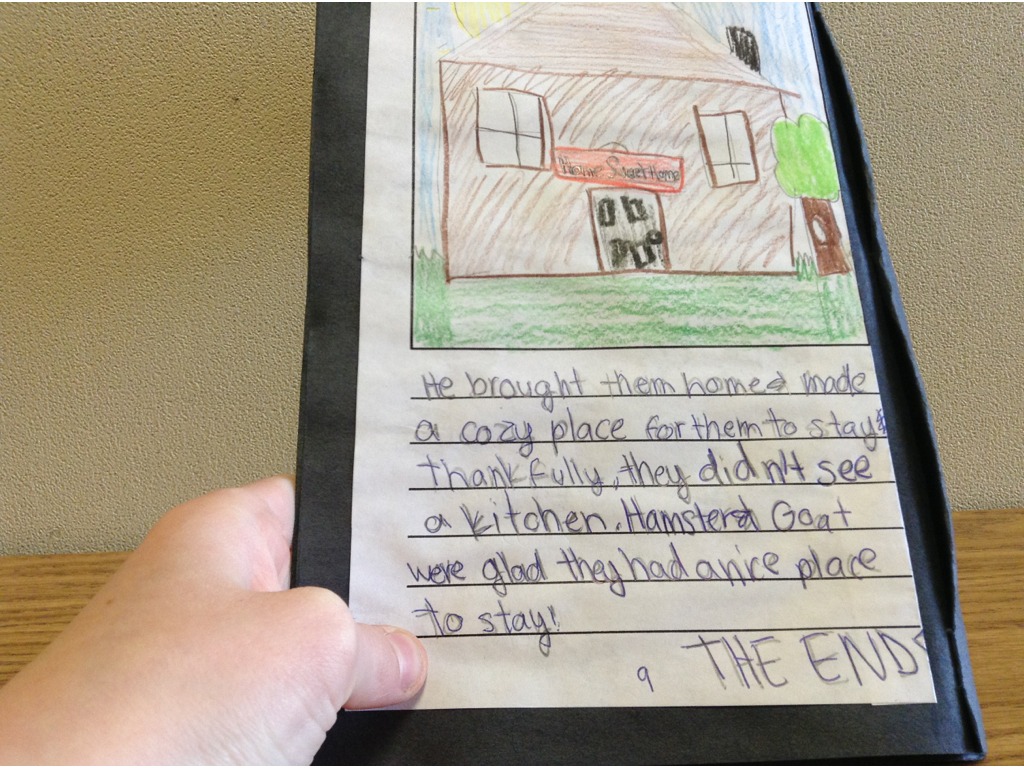 Home Sweet Home
He brought them home & made
a cozy place for them to stay.
thankfully, they didn't see
a kitchen. Hamster & Goat
were glad they had a nice place
to stay!
9 THE END